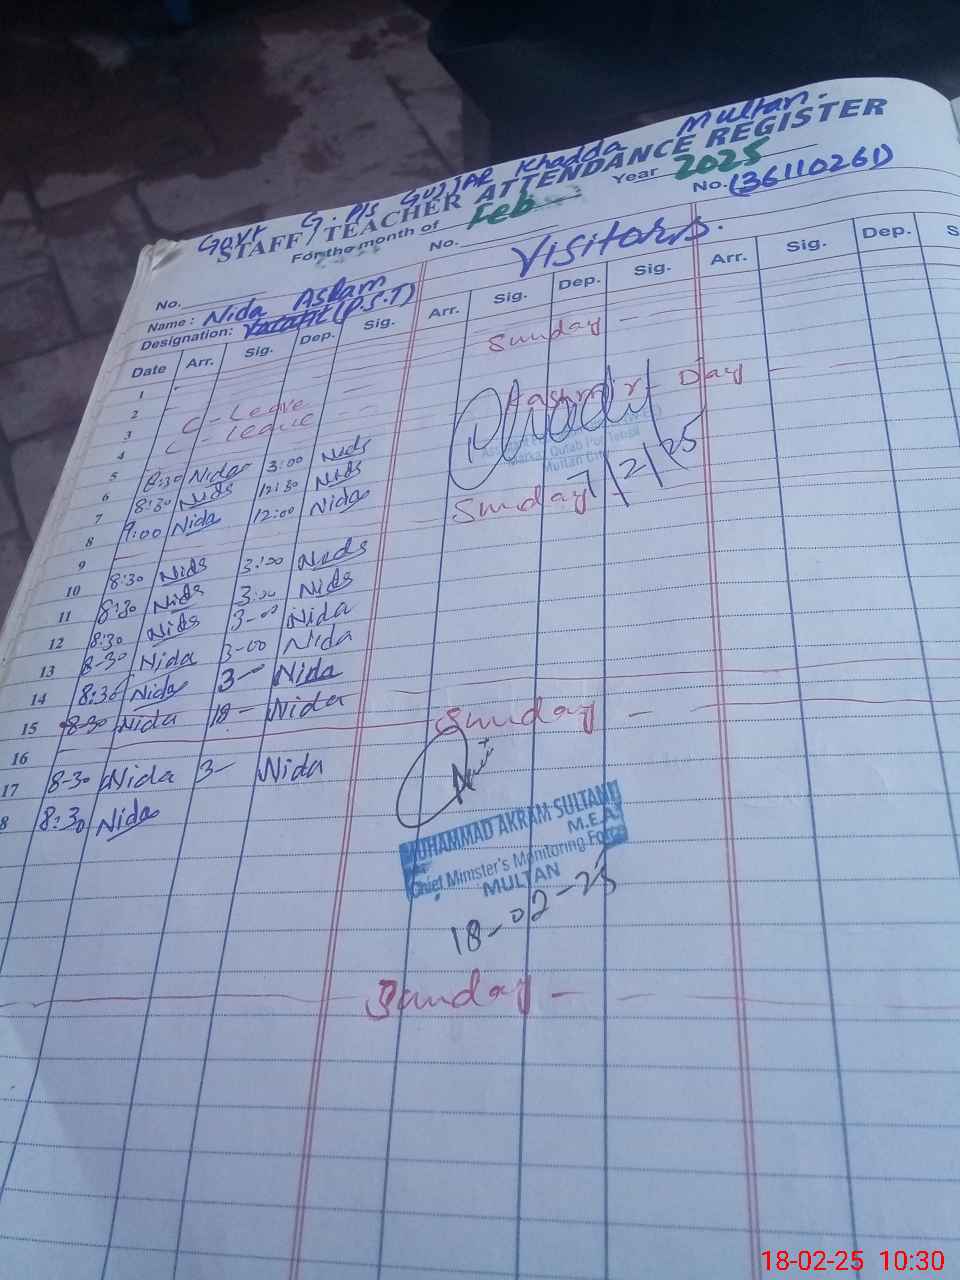 Govt G. P/S Gujjar Khadda Multan.
STAFF / TEACHER ATTENDANCE REGISTER
For the month of Feb Year 2025
No. No. (36110261)
Name : Nida Aslam Visitors.
Designation: (P.S.T)
Date Arr. Sig. Dep. Sig. Arr. Sig. Dep. Sig. Arr. Sig. Dep. S
1
2 Sunday -
3 C - Leave
4 C - Leave
5 Kashmir Day
6 8:30 Nida 3:00 Nida
7 8:30 Nida 12:30 Nida
8 9:00 Nida 12:00 Nida
Multan
7/2/25
9 Sunday
10 8:30 Nida 3:00 Nida
11 8:30 Nida 3:00 Nida
12 8:30 Nida 3-00 Nida
13 8-30 Nida 3-00 Nida
14 8:30 Nida 3- Nida
15 8-30 Nida Nida
16 Sunday -
17 8-30 Nida 3- Nida
8 8:30 Nida
MUHAMMAD AKRAM SULTANI
M.E.A.
Chief Minister's Monitoring Force
MULTAN
18-02-25
Sunday -
18-02-25 10:30